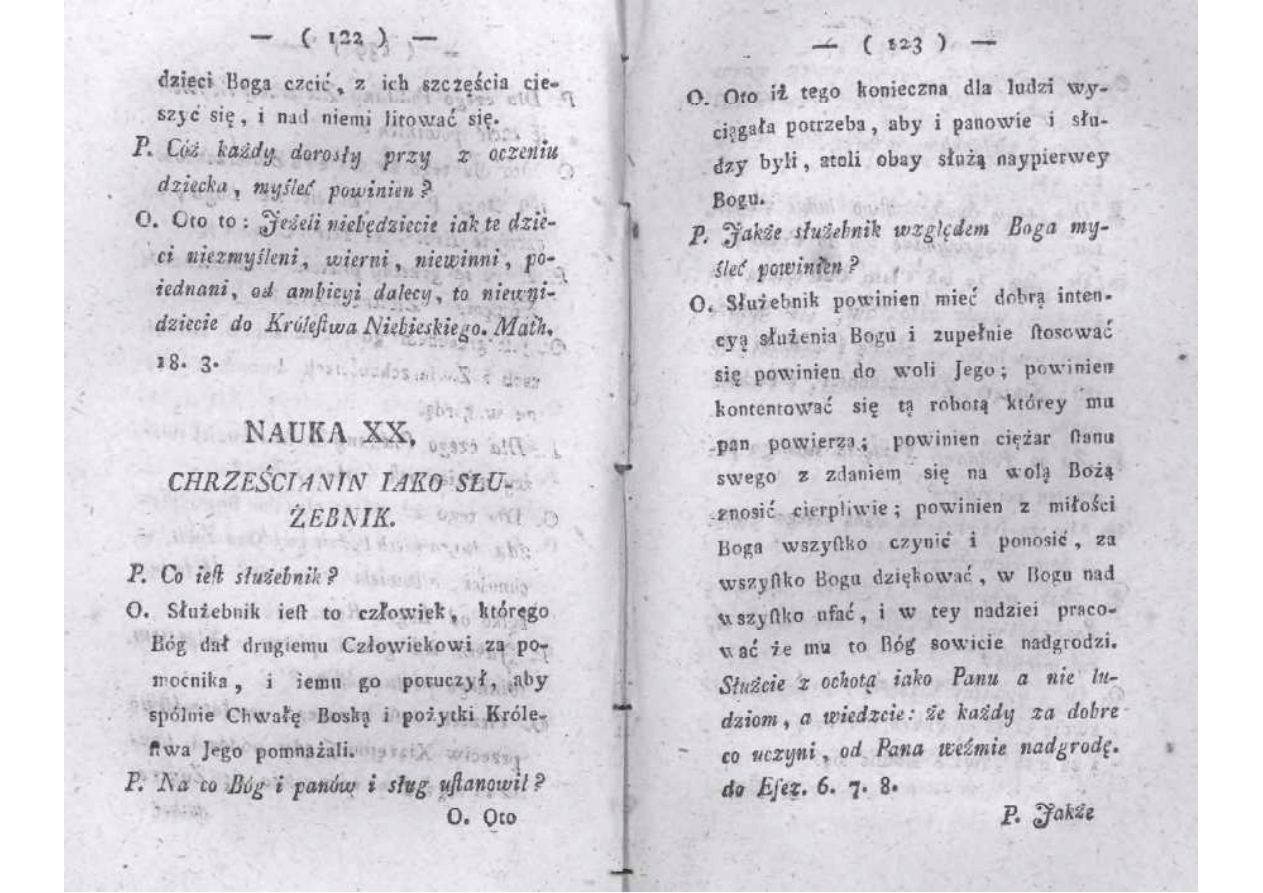 — ( 122 ) —
dzieci Boga czcić, z ich szczęścia cie-
szyć się, i nad niemi litować się.
P. Cóż każdy dorosły przy z oczeniu
dziecka, myśleć powinien?
O. Oto to: Jeżeli niebędziecie iak te dzie-
ci niezmyśleni, wierni, niewinni, po-
iednani, od ambicyi dalecy, to niewni-
dziecie do Królestwa Niebieskiego. Math.
18. 3.
NAUKA XX.
CHRZEŚCIANIN IAKO SŁU-
ŻEBNIK.
P. Co iest służebnik?
O. Służebnik iest to człowiek, którego
Bóg dał drugiemu Człowiekowi za po-
mocnika, i iemu go poruczył, aby
spólnie Chwałę Boską i pożytki Króle-
stwa Jego pomnażali.
P. Na co Bóg i panów i sług ustanowił?
O. Oto
— ( 123 ) —
O. Oto iż tego konieczna dla ludzi wy-
ciągała potrzeba, aby i panowie i słu-
dzy byli, atoli obay służą naypierwey
Bogu.
P. Jakże służebnik względem Boga my-
śleć powinien?
O. Służebnik powinien mieć dobrą inten-
cyą służenia Bogu i zupełnie stosować
się powinien do woli Jego; powinien
kontentować się tą robotą którey mu
pan powierza; powinien ciężar stanu
swego z zdaniem się na wolą Bożą
znosić cierpliwie; powinien z miłości
Boga wszystko czynić i ponosić, za
wszystko Bogu dziękować, w Bogu nad
wszystko ufać, i w tey nadziei praco-
wać że mu to Bóg sowicie nadgrodzi.
Służcie z ochotą iako Panu a nie lu-
dziom, a wiedzcie: że każdy za dobre
co uczyni, od Pana weźmie nadgrodę.
do Efez. 6. 7. 8.
P. Jakże